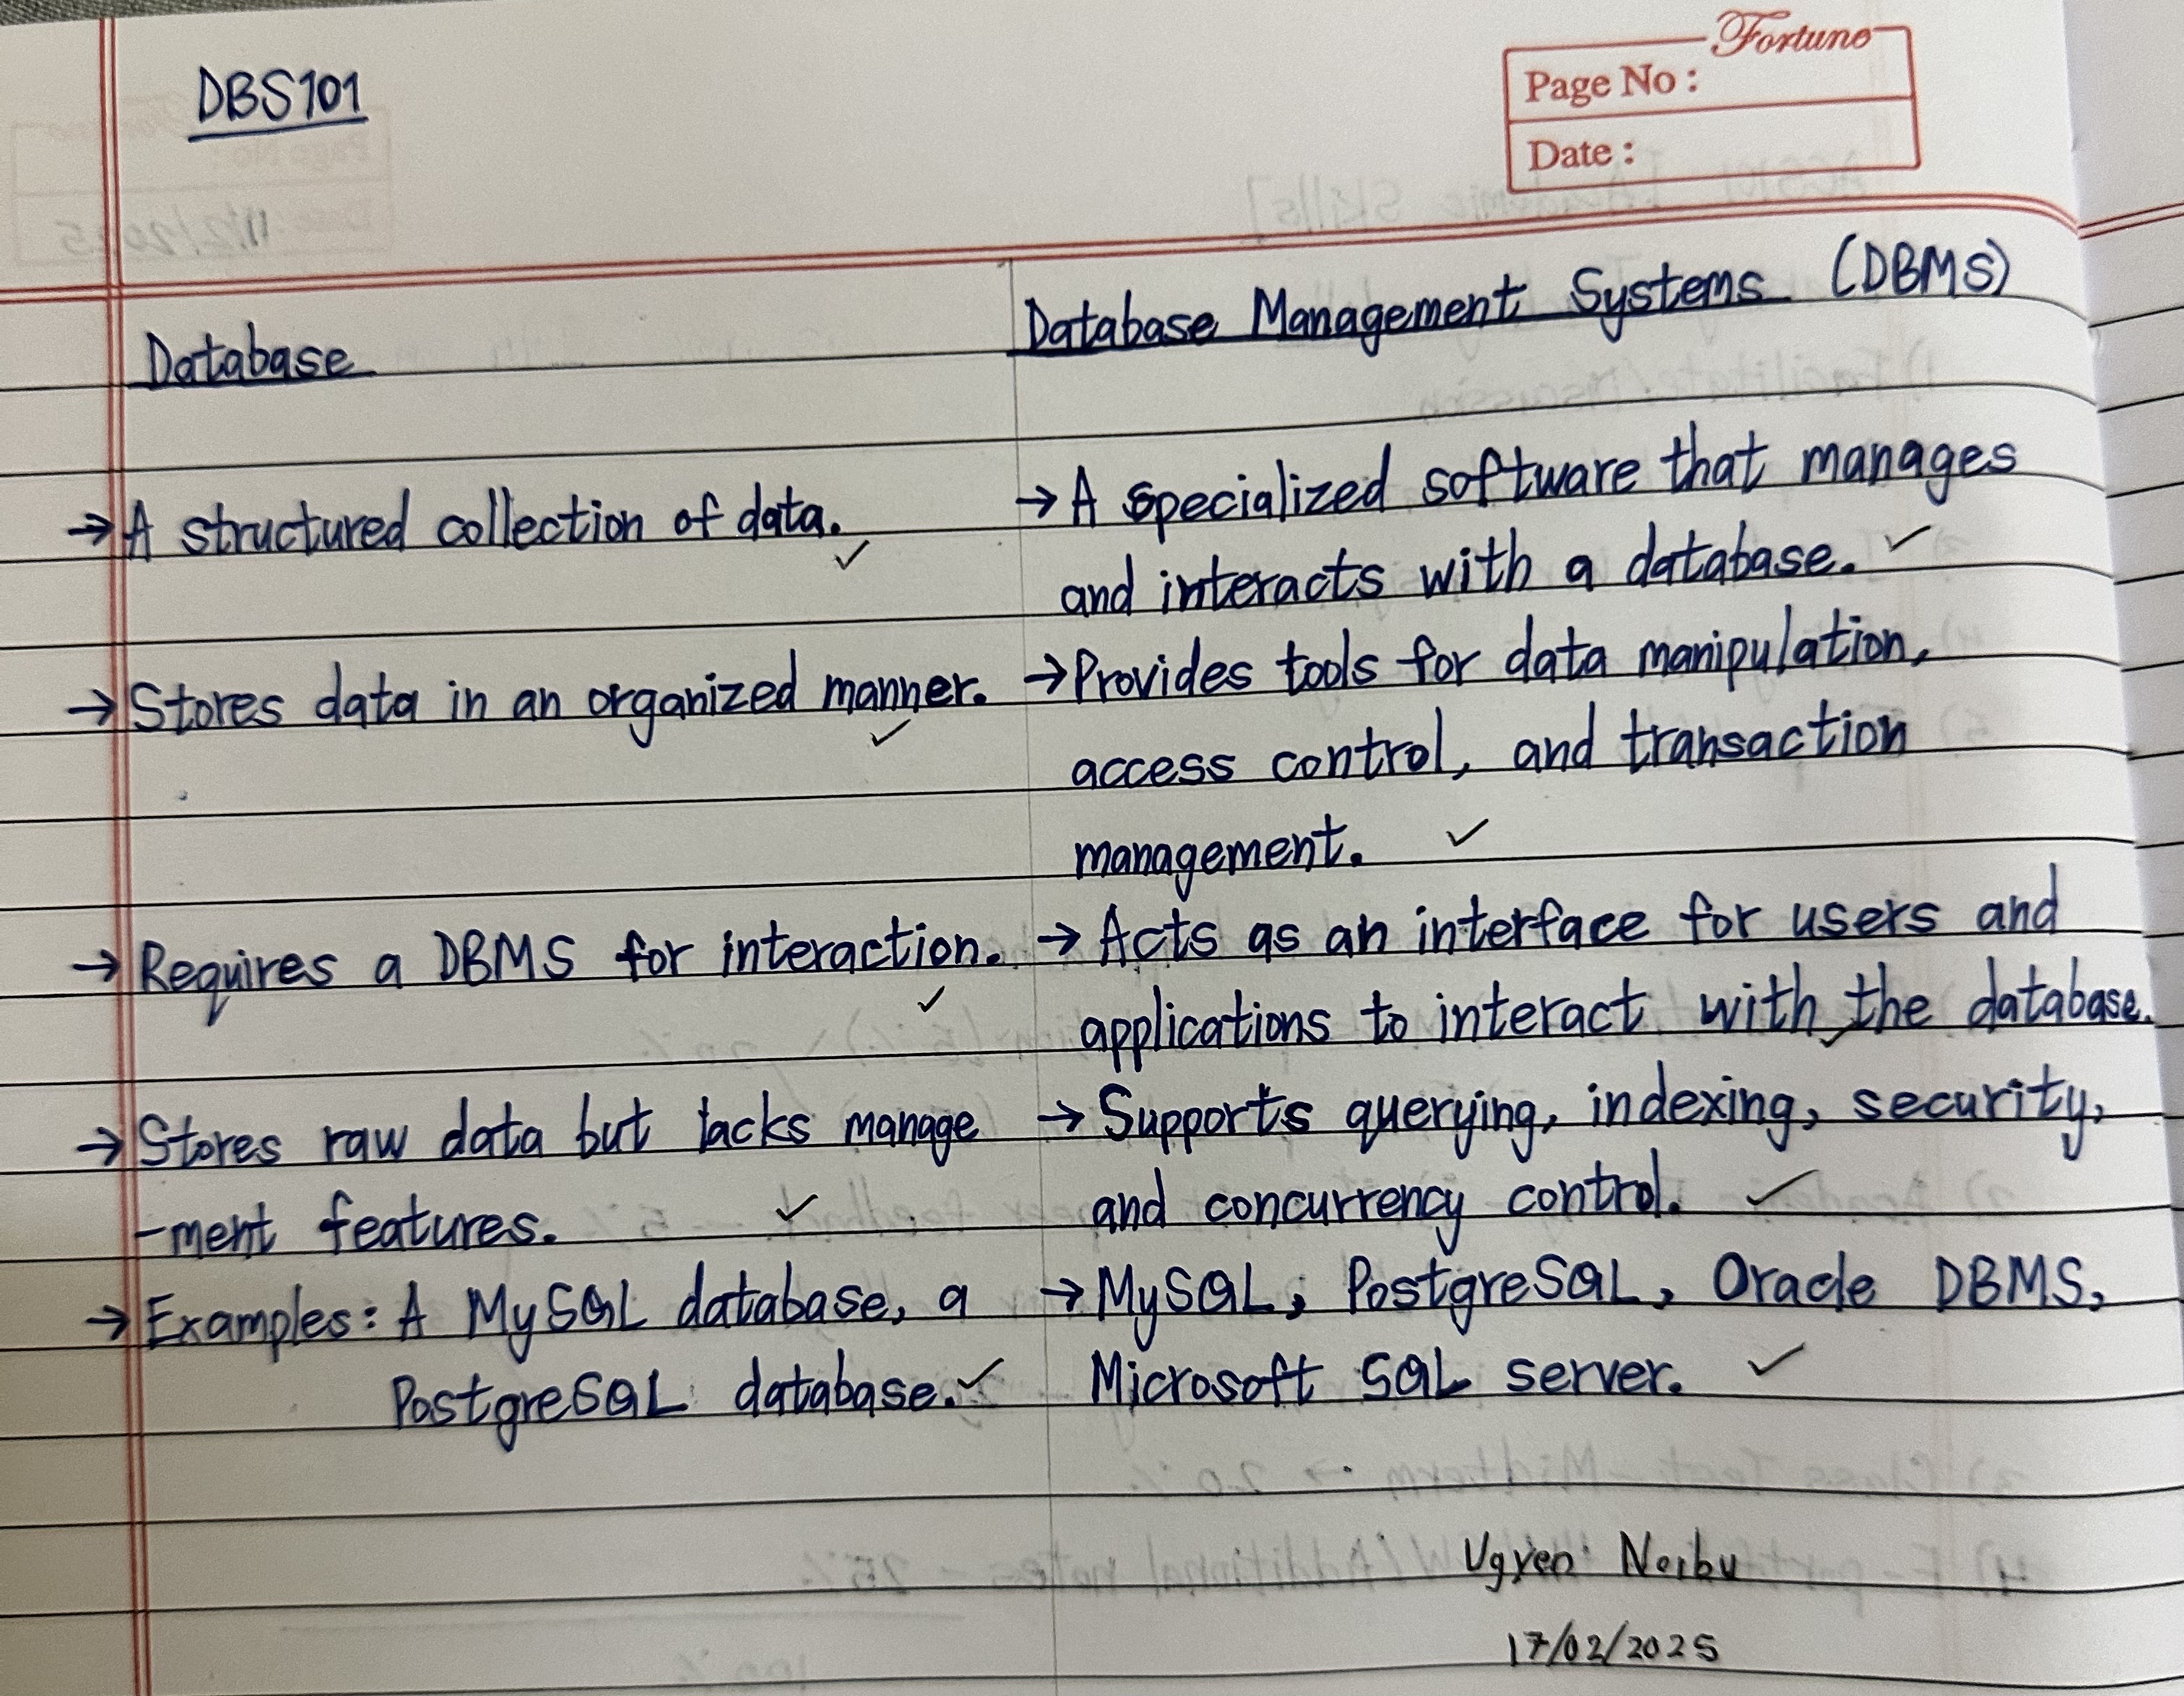 DBS101
Fortune
Page No :
Date :
Database
Database Management Systems (DBMS)
→ A structured collection of data.
→ A specialized software that manages
and interacts with a database.
→ Stores data in an organized manner.
→ Provides tools for data manipulation,
access control, and transaction
management.
→ Requires a DBMS for interaction.
→ Acts as an interface for users and
applications to interact with the database.
→ Stores raw data but lacks manage
-ment features.
→ Supports querying, indexing, security,
and concurrency control.
→ Examples: A MySQL database, a
PostgreSQL database.
→ MySQL, PostgreSQL, Oracle DBMS,
Microsoft SQL server.
Ugyen Norbu
17/02/2025